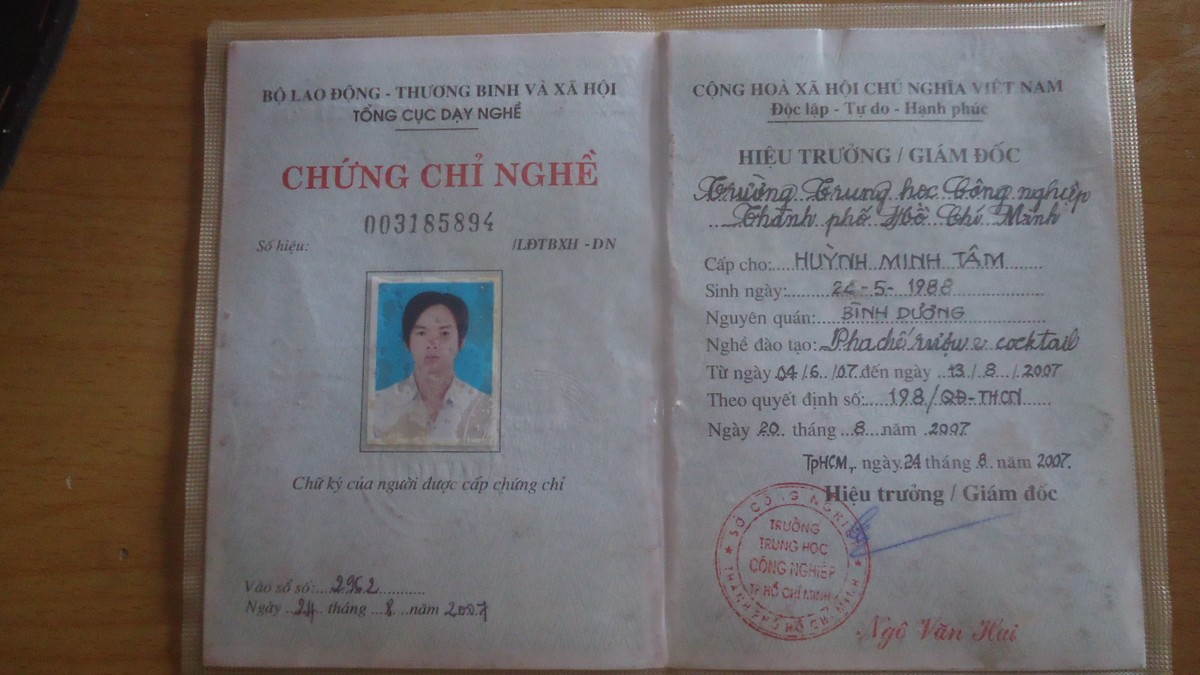 BỘ LAO ĐỘNG - THƯƠNG BINH VÀ XÃ HỘI
TỔNG CỤC DẠY NGHỀ
CHỨNG CHỈ NGHỀ
003185894
Số hiệu: /LĐTBXH - DN
Chữ ký của người được cấp chứng chỉ
Vào sổ số:....292............
Ngày ..24.. tháng ...8...năm 2007
CỘNG HOÀ XÃ HỘI CHỦ NGHĨA VIỆT NAM
Độc lập - Tự do - Hạnh phúc
HIỆU TRƯỞNG / GIÁM ĐỐC
Trường Trung học Công nghiệp
Thành phố Hồ Chí Minh
Cấp cho:....HUỲNH MINH TÂM
Sinh ngày:........24-5-1988
Nguyên quán:....BÌNH DƯƠNG
Nghề đào tạo: Pha chế rượu & cocktail
Từ ngày 04/6/07 đến ngày 13/8/2007
Theo quyết định số:....198/QĐ-THCN
Ngày 20 tháng ..8...năm 2007
TpHCM, ngày 24 tháng 8 năm 2007.
Hiệu trưởng / Giám đốc
SỞ CÔNG NGHIỆP
TRƯỜNG
TRUNG HỌC
CÔNG NGHIỆP
TP HỒ CHÍ MINH
THÀNH PHỐ HỒ CHÍ MINH
Ngô Văn Hai